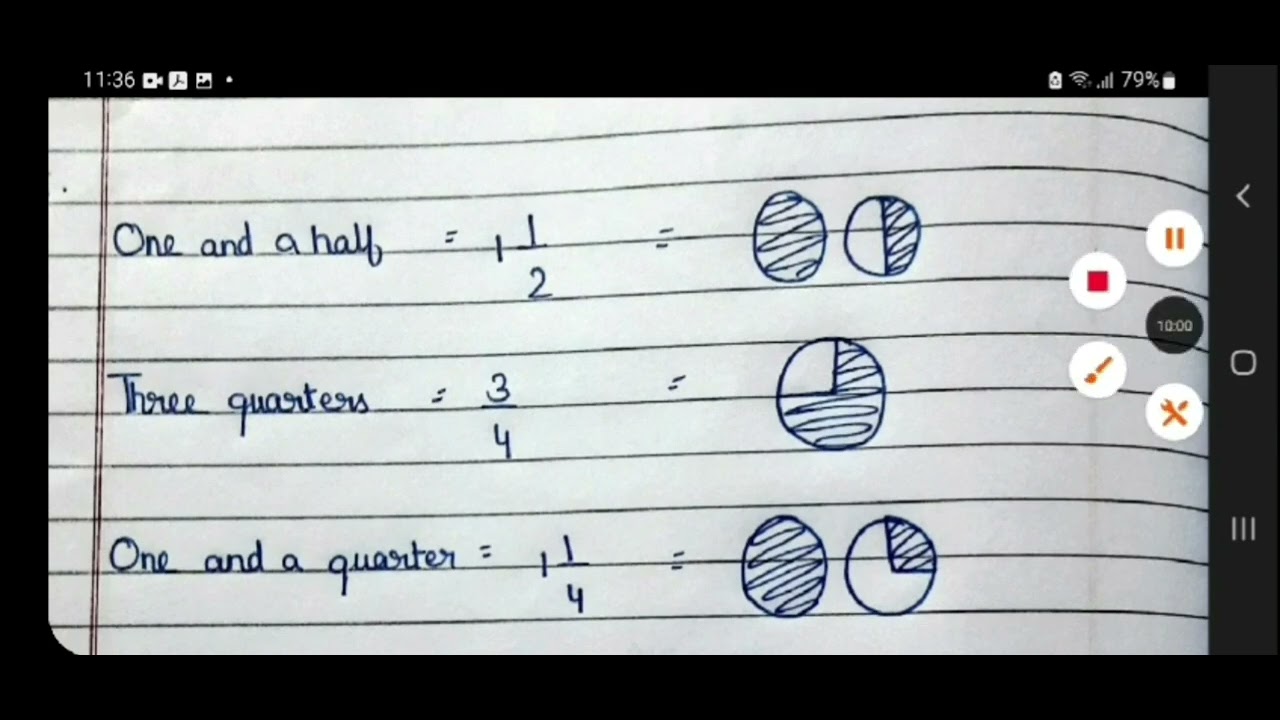 11:36 79%
One and a half = 1 1/2 =
10:00
Three quarters = 3/4 =
One and a quarter = 1 1/4 =